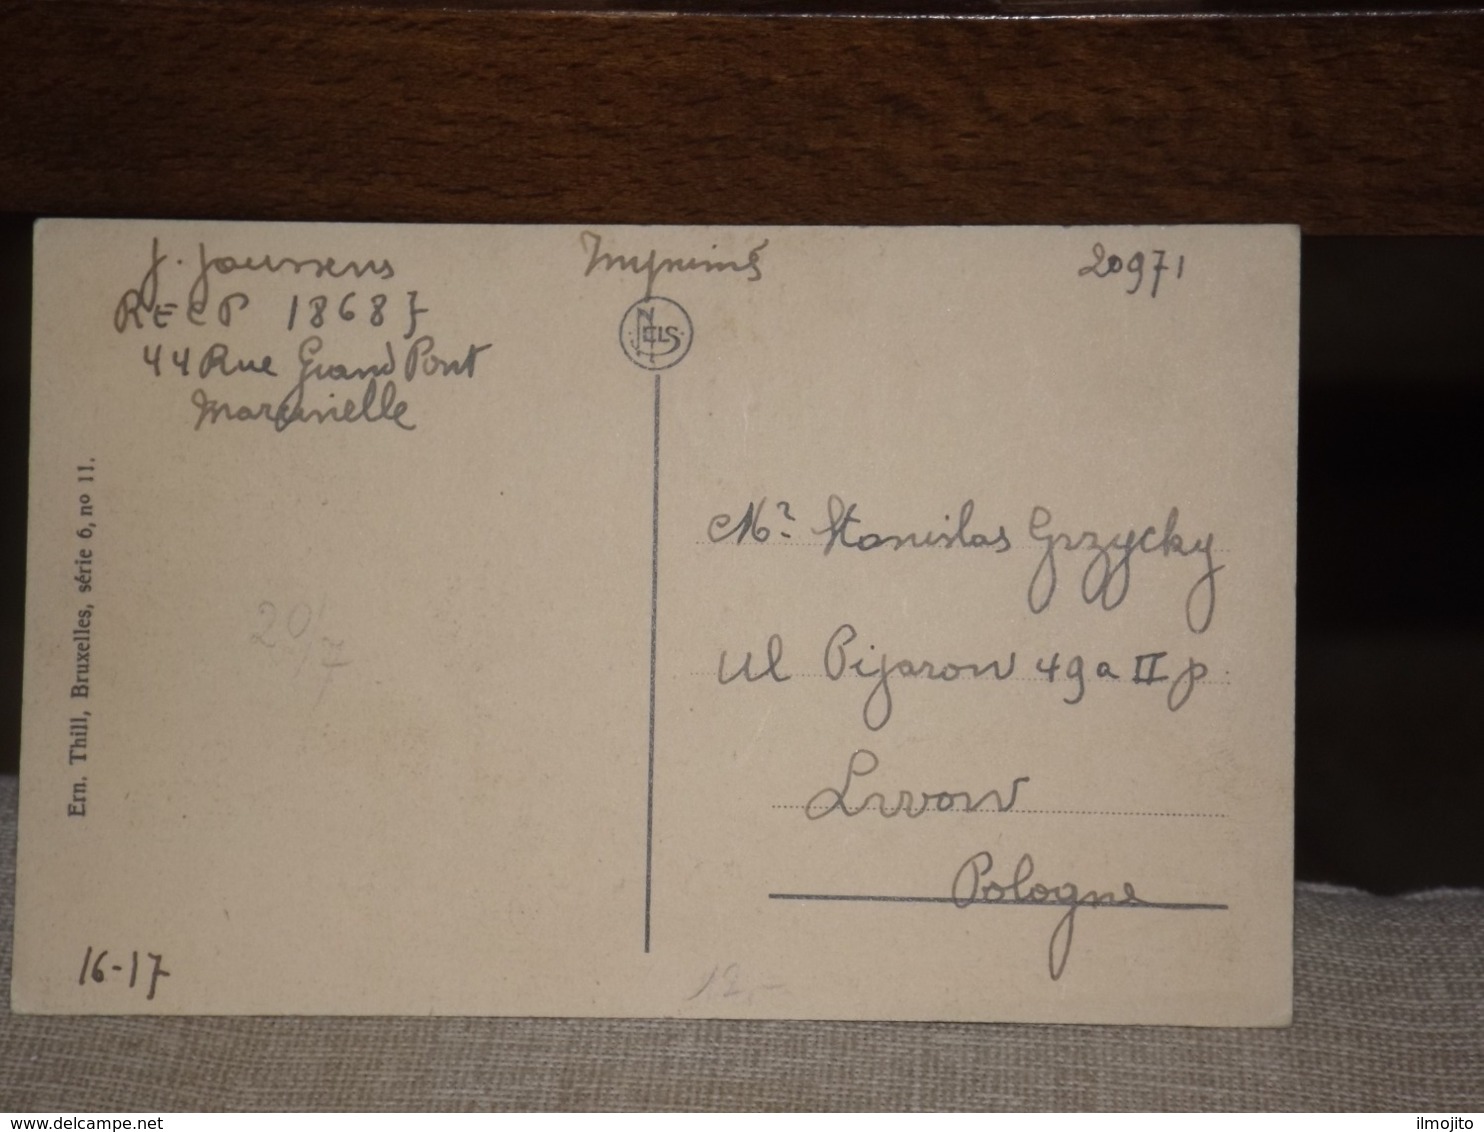 J. Joussens
RECP 18687
44 Rue Grand Pont
Marcinelle
Imprimé
20971
NELS
Mr. Stanislas Grzycky
Ul Pijarow 49a II p.
Lwow
Pologne
Ern. Thill, Bruxelles, série 6, no 11.
20/7
16-17
12,-
delcampe.net
ilmojito